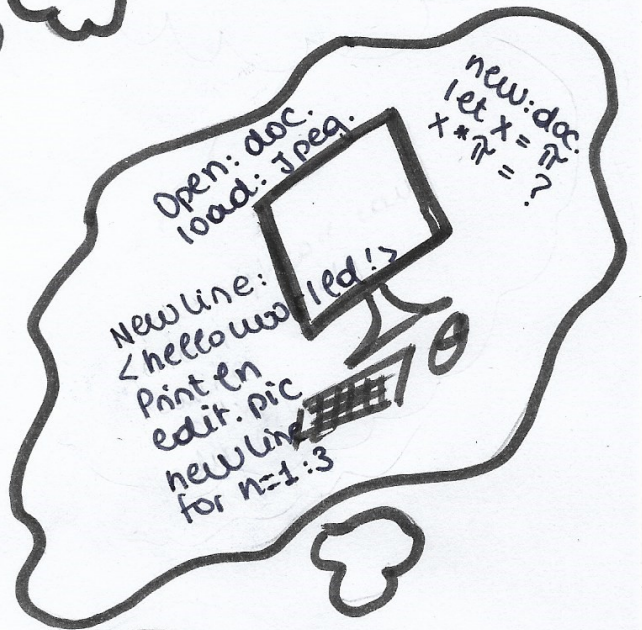 Open: doc.
load: Jpeg.
new: doc.
let x = π
x * π = ?
New line:
<hello woorled!>
Print ln
edit. pic
new line
for n=1:3